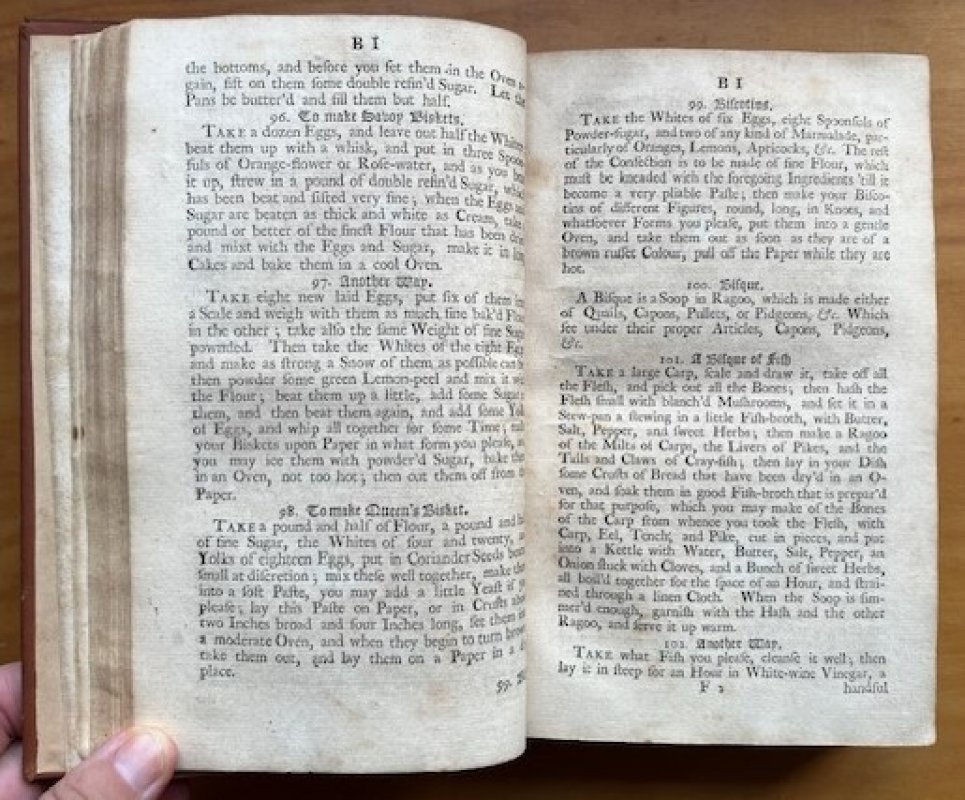 B I
the bottoms, and before you ſet them in the Oven
gain, ſift on them ſome double refin'd Sugar. Let the
Pans be butter'd and fill them but half.
96. To make Savoy Biskets.
TAKE a dozen Eggs, and leave out half the Whites,
beat them up with a whisk, and put in three Spoon
fuls of Orange-flower or Roſe-water, and as you beat
it up, ſtrew in a pound of double refin'd Sugar, which
has been beat and ſifted very fine; when the Eggs and
Sugar are beaten as thick and white as Cream, take
pound or better of the fineſt Flour that has been
and mixt with the Eggs and Sugar, make it in long
Cakes and bake them in a cool Oven.
97. Another Way.
TAKE eight new laid Eggs, put ſix of them
a Scale and weigh with them as much fine bak'd Flour
in the other; take alſo the ſame Weight of fine Sugar
pownded. Then take the Whites of the eight Eggs
and make as ſtrong a Snow of them as poſſible can
then powder ſome green Lemon-peel and mix it
the Flour; beat them up a little, add ſome Sugar
them, and then beat them again, and add ſome Yolks
of Eggs, and whip all together for ſome Time;
your Biskets upon Paper in what form you pleaſe,
you may ice them with powder'd Sugar, bake them
in an Oven, not too hot; then cut them off from
Paper.
98. To make Queen's Bisket.
TAKE a pound and half of Flour, a pound and
of fine Sugar, the Whites of four and twenty,
Yolks of eighteen Eggs, put in Coriander Seeds beaten
ſmall at diſcretion; mix theſe well together, make
into a ſoft Paſte, you may add a little Yeaſt if
pleaſe; lay this Paſte on Paper, or in Cruſts
two Inches broad and four Inches long, ſet them
a moderate Oven, and when they begin to turn brown
take them out, and lay them on a Paper in a
place.
99.
B I
99. Biſcotins.
TAKE the Whites of ſix Eggs, eight Spoonfuls of
Powder-ſugar, and two of any kind of Marmalade, par-
ticularly of Oranges, Lemons, Apricocks, &c. The reſt
of the Confection is to be made of fine Flour, which
muſt be kneaded with the foregoing Ingredients 'till it
become a very pliable Paſte; then make your Biſco-
tins of different Figures, round, long, in Knots, and
whatſoever Forms you pleaſe, put them into a gentle
Oven, and take them out as ſoon as they are of a
brown ruſſet Colour, pull off the Paper while they are
hot.
100. Biſque.
A Biſque is a Soop in Ragoo, which is made either
of Quails, Capons, Pullets, or Pidgeons, &c. Which
ſee under their proper Articles, Capons, Pidgeons,
&c.
101. A Biſque of Fiſh
TAKE a large Carp, ſcale and draw it, take off all
the Fleſh, and pick out all the Bones; then haſh the
Fleſh ſmall with blanch'd Muſhrooms, and ſet it in a
Stew-pan a ſtewing in a little Fiſh-broth, with Butter,
Salt, Pepper, and ſweet Herbs; then make a Ragoo
of the Milts of Carps, the Livers of Pikes, and the
Tails and Claws of Cray-fiſh; then lay in your Diſh
ſome Cruſts of Bread that have been dry'd in an O-
ven, and ſoak them in good Fiſh-broth that is prepar'd
for that purpoſe, which you may make of the Bones
of the Carp from whence you took the Fleſh, with
Carp, Eel, Tench, and Pike, cut in pieces, and put
into a Kettle with Water, Butter, Salt, Pepper, an
Onion ſtuck with Cloves, and a Bunch of ſweet Herbs,
all boil'd together for the ſpace of an Hour, and ſtrai-
ned through a linen Cloth. When the Soop is ſim-
mer'd enough, garniſh with the Haſh and the other
Ragoo, and ſerve it up warm.
102. Another Way.
TAKE what Fiſh you pleaſe, cleanſe it well; then
lay it in ſteep for an Hour in White-wine Vinegar, a
F 2 handful